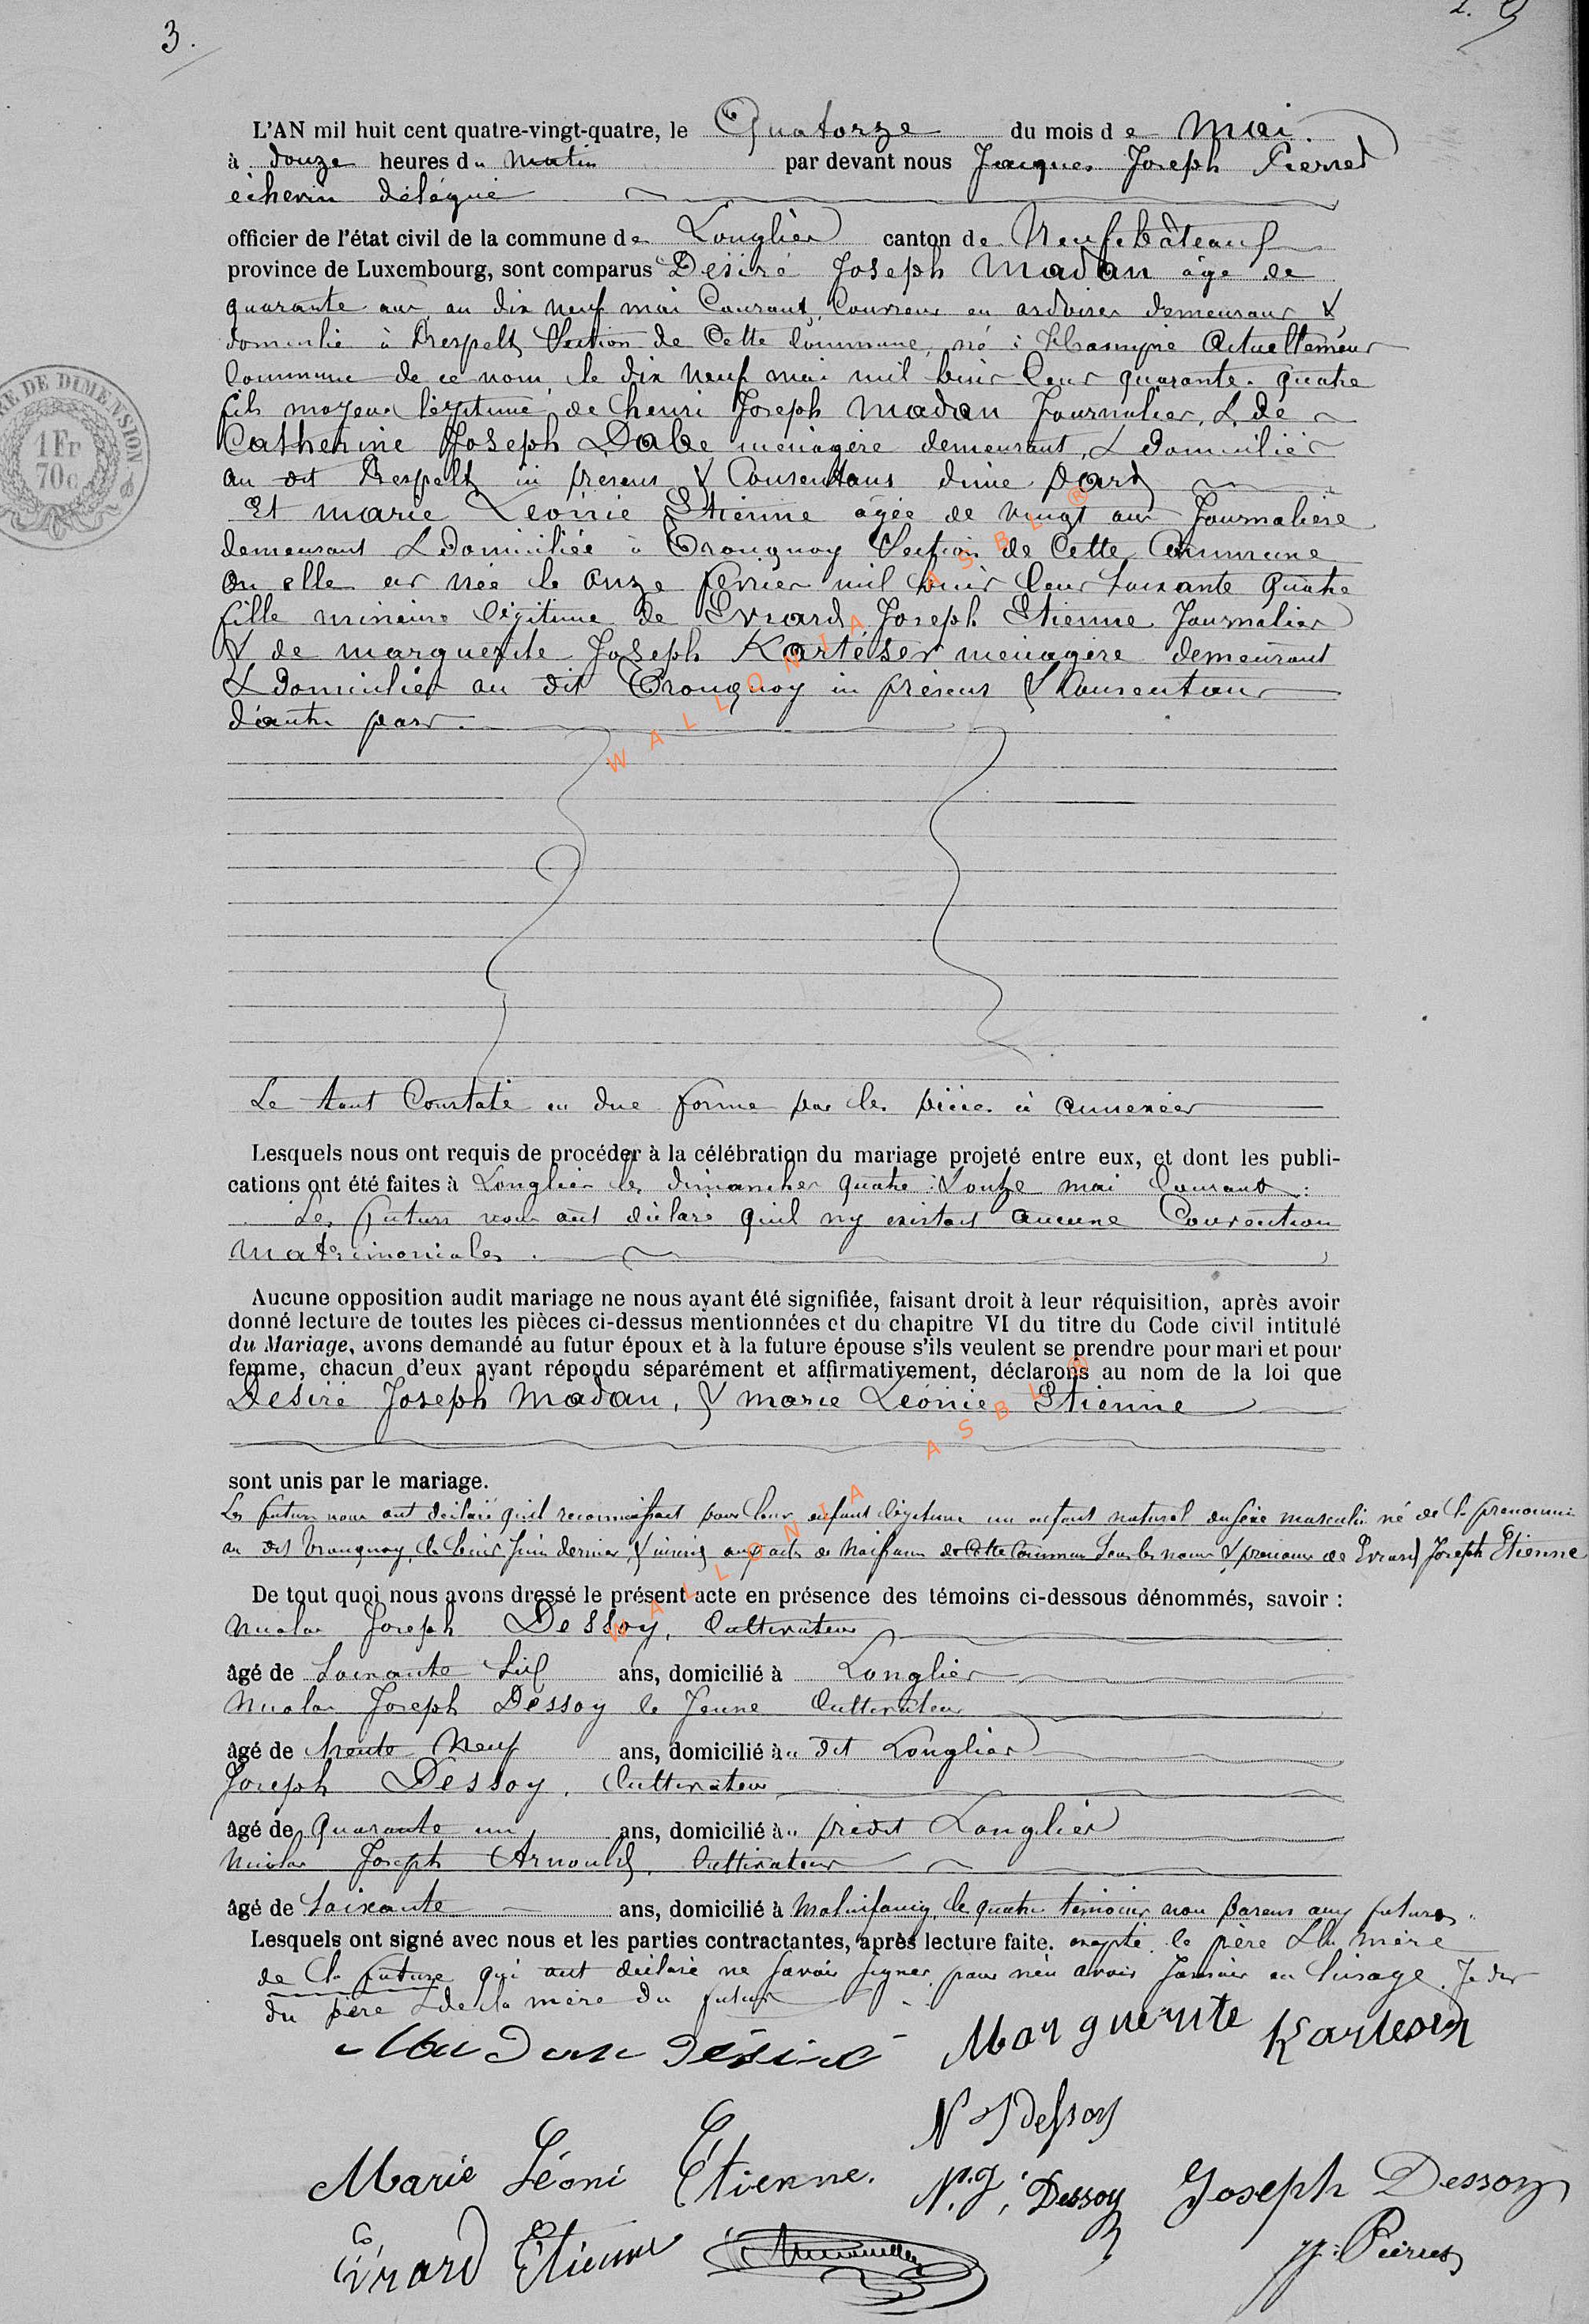 3.
L'AN mil huit cent quatre-vingt-quatre, le Quatorze du mois de Mai
à douze heures du Matin par devant nous Jacques Joseph Pierret
échevin délégué
officier de l'état civil de la commune de Longlier canton de Neufchâteau
province de Luxembourg, sont comparus Désiré Joseph Madan âgé de
quarante ans, au dix neuf mai Courant, Couvreur en ardoises demeurant &
domicilié à Respelt Section de Cette Commune, né à actuellement
Commune de ce nom, le dix neuf mai mil huit Cent quarante-quatre
fils majeur légitime de henri Joseph Madan Journalier, & de
Catherine Joseph Dabe ménagère demeurant & domiciliés
au dit Respelt ici présens & Consentans d'une part
Et marie Léonie Etienne âgée de vingt ans Journalière
demeurant & domiciliée à Tronquoy Section de Cette Commune
où elle est née le onze février mil huit Cent soixante quatre
fille mineure légitime de Evrard Joseph Etienne Journalier
& de marguerite Joseph Karteser ménagère demeurant
& domiciliés au dit Tronquoy ici présens & Consentans
d'autre part.
Le tout Constaté en due forme par les pièces ci annexées
Lesquels nous ont requis de procéder à la célébration du mariage projeté entre eux, et dont les publi-
cations ont été faites à Longlier les dimanches quatre & onze mai Courant :
Les futurs nous ont déclaré qu'il n'y existait aucune Convention
Matrimoniales.
Aucune opposition audit mariage ne nous ayant été signifiée, faisant droit à leur réquisition, après avoir
donné lecture de toutes les pièces ci-dessus mentionnées et du chapitre VI du titre du Code civil intitulé
du Mariage, avons demandé au futur époux et à la future épouse s'ils veulent se prendre pour mari et pour
femme, chacun d'eux ayant répondu séparément et affirmativement, déclarons au nom de la loi que
Désiré Joseph Madan, & marie Léonie Etienne
sont unis par le mariage.
Les futurs nous ont déclaré qu'il reconnaissent pour leur enfant légitime un enfant naturel du sexe masculin né de la prénommée
au dit Tronquoy, le huit Juin dernier, & inscrit aux actes de Naissances de Cette Commune sous les noms & prénoms de Evrard Joseph Etienne
De tout quoi nous avons dressé le présent acte en présence des témoins ci-dessous dénommés, savoir :
Nicolas Joseph Dessoy, Cultivateur
âgé de Soixante Six ans, domicilié à Longlier
Nicolas Joseph Dessoy le Jeune Cultivateur
âgé de trente Neuf ans, domicilié au dit Longlier
Joseph Dessoy, Cultivateur
âgé de Quarante un ans, domicilié au prédit Longlier
Nicolas Joseph Arnould, Cultivateur
âgé de Soixante ans, domicilié à Molinfaing, les quatre témoins non parens aux futurs.
Lesquels ont signé avec nous et les parties contractantes, après lecture faite. excepté le père & la mère
de la future qui ont déclaré ne savoir signer pour n'en avoir Jamais eu l'usage. Je dis
du père & de la mère du futur
Madan Désiré
Marguerite Karteser
N J Dessoy
Marie Léoni Etienne.
N. J. Dessoy
Joseph Dessoy
Evrard Etienne
JJ. Pierret
RE DE DIMENSION
1 Fr
70c
WALLONIA ASBL ®
WALLONIA ASBL ®